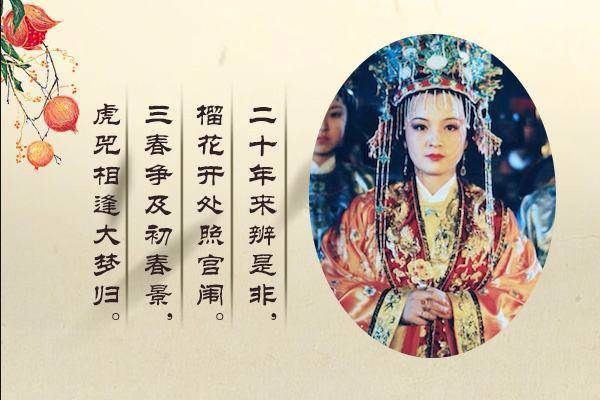 二十年来辨是非，
榴花开处照宫闱。
三春争及初春景，
虎兕相逢大梦归。